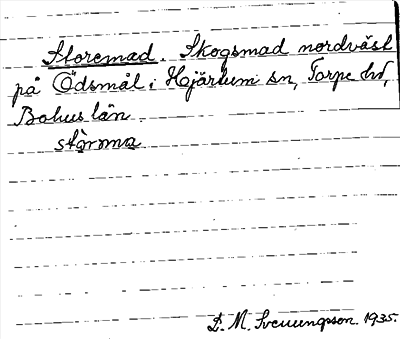 Storemad. Skogsmad nordväst
på Ödsmål i Hjärtum sn, Torpe hd,
Bohuslän.
D. M. Svenungsson. 1935.